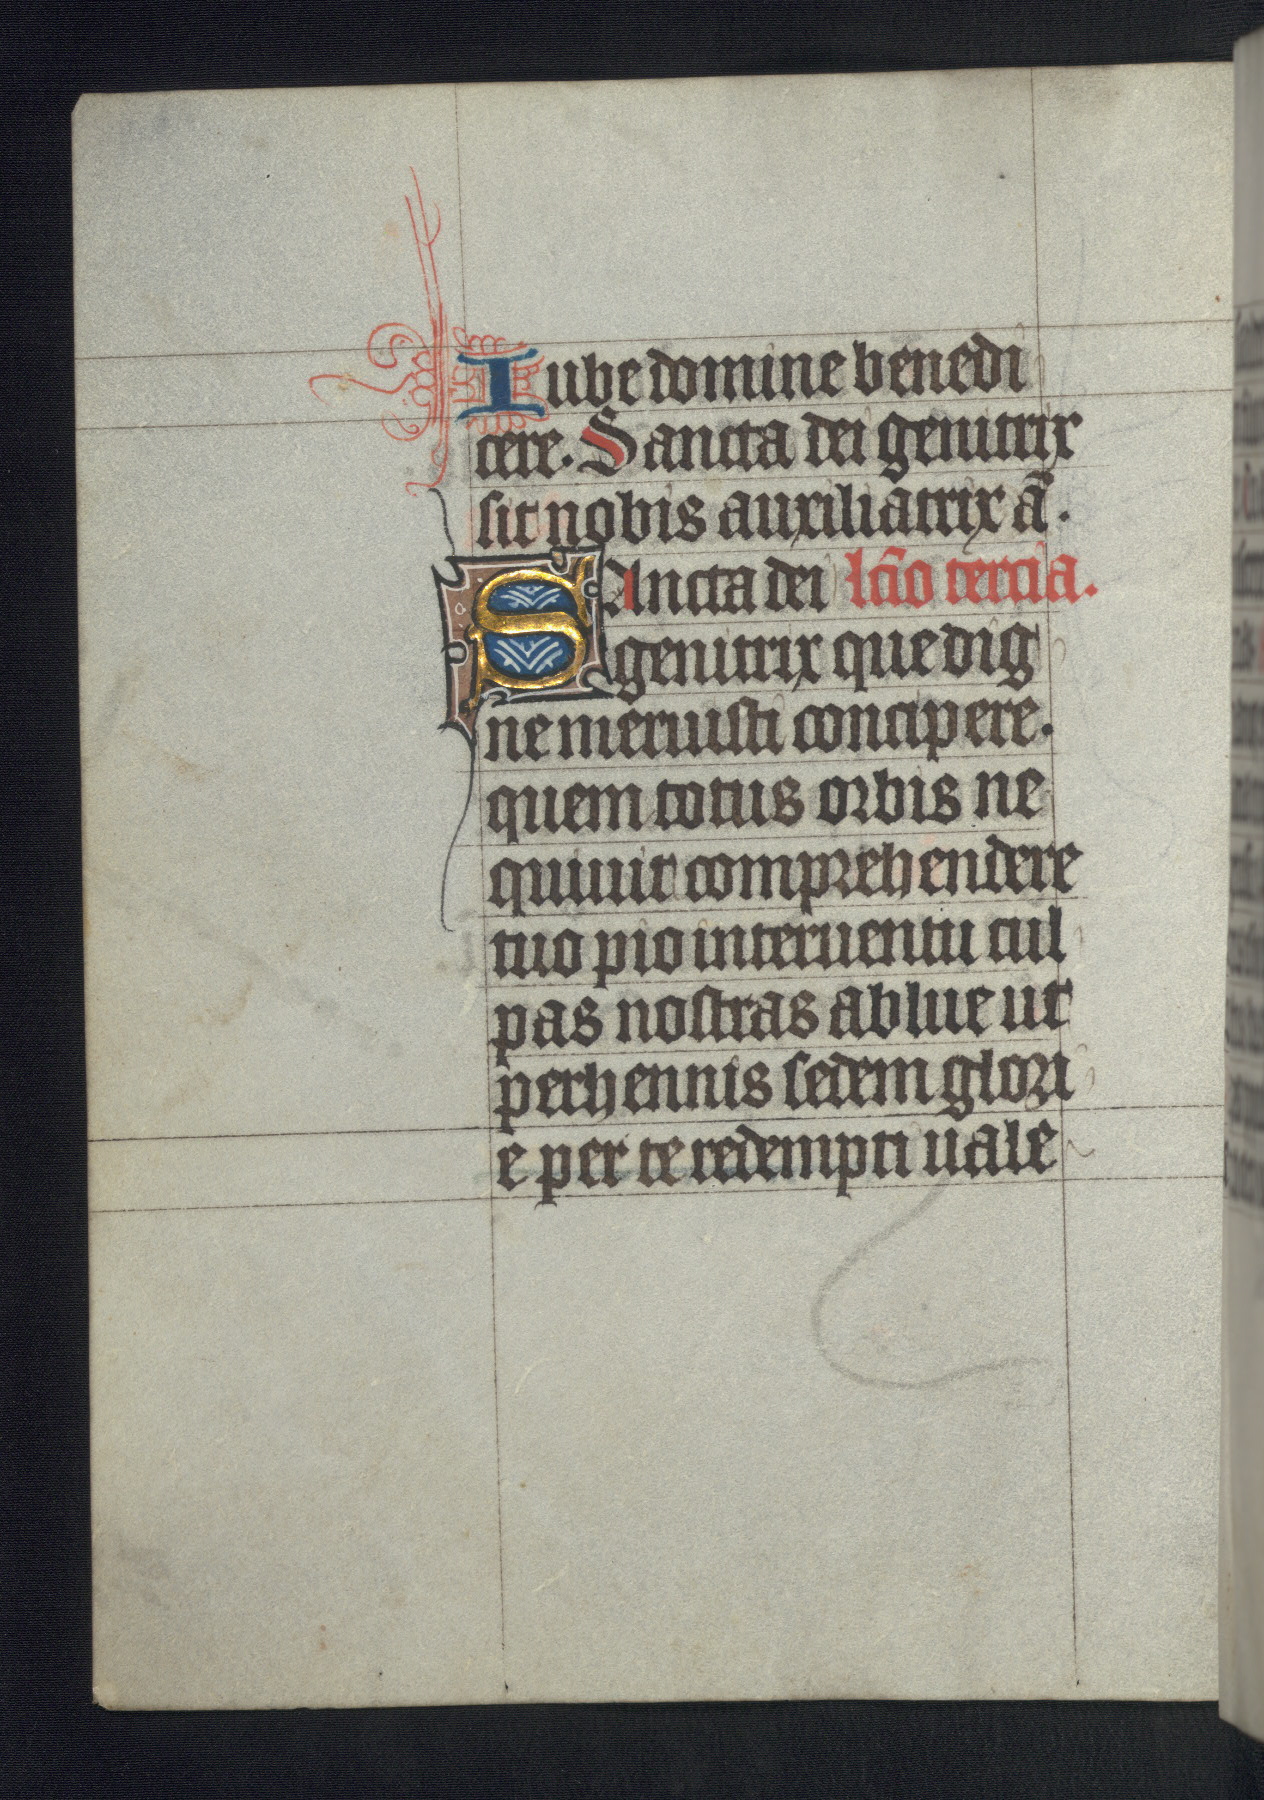 Iube domine benedi
cere. Sancta dei genitrix
sit nobis auxiliatrix a̅.
SAncta dei lc̅io tercia.
genitrix que dig
ne meruisti concipere.
quem totus orbis ne
quiuit comprehendere
tuo pio interuentu cul
pas nostras ablue ut
perhennis sedem glori
e per te redempti uale